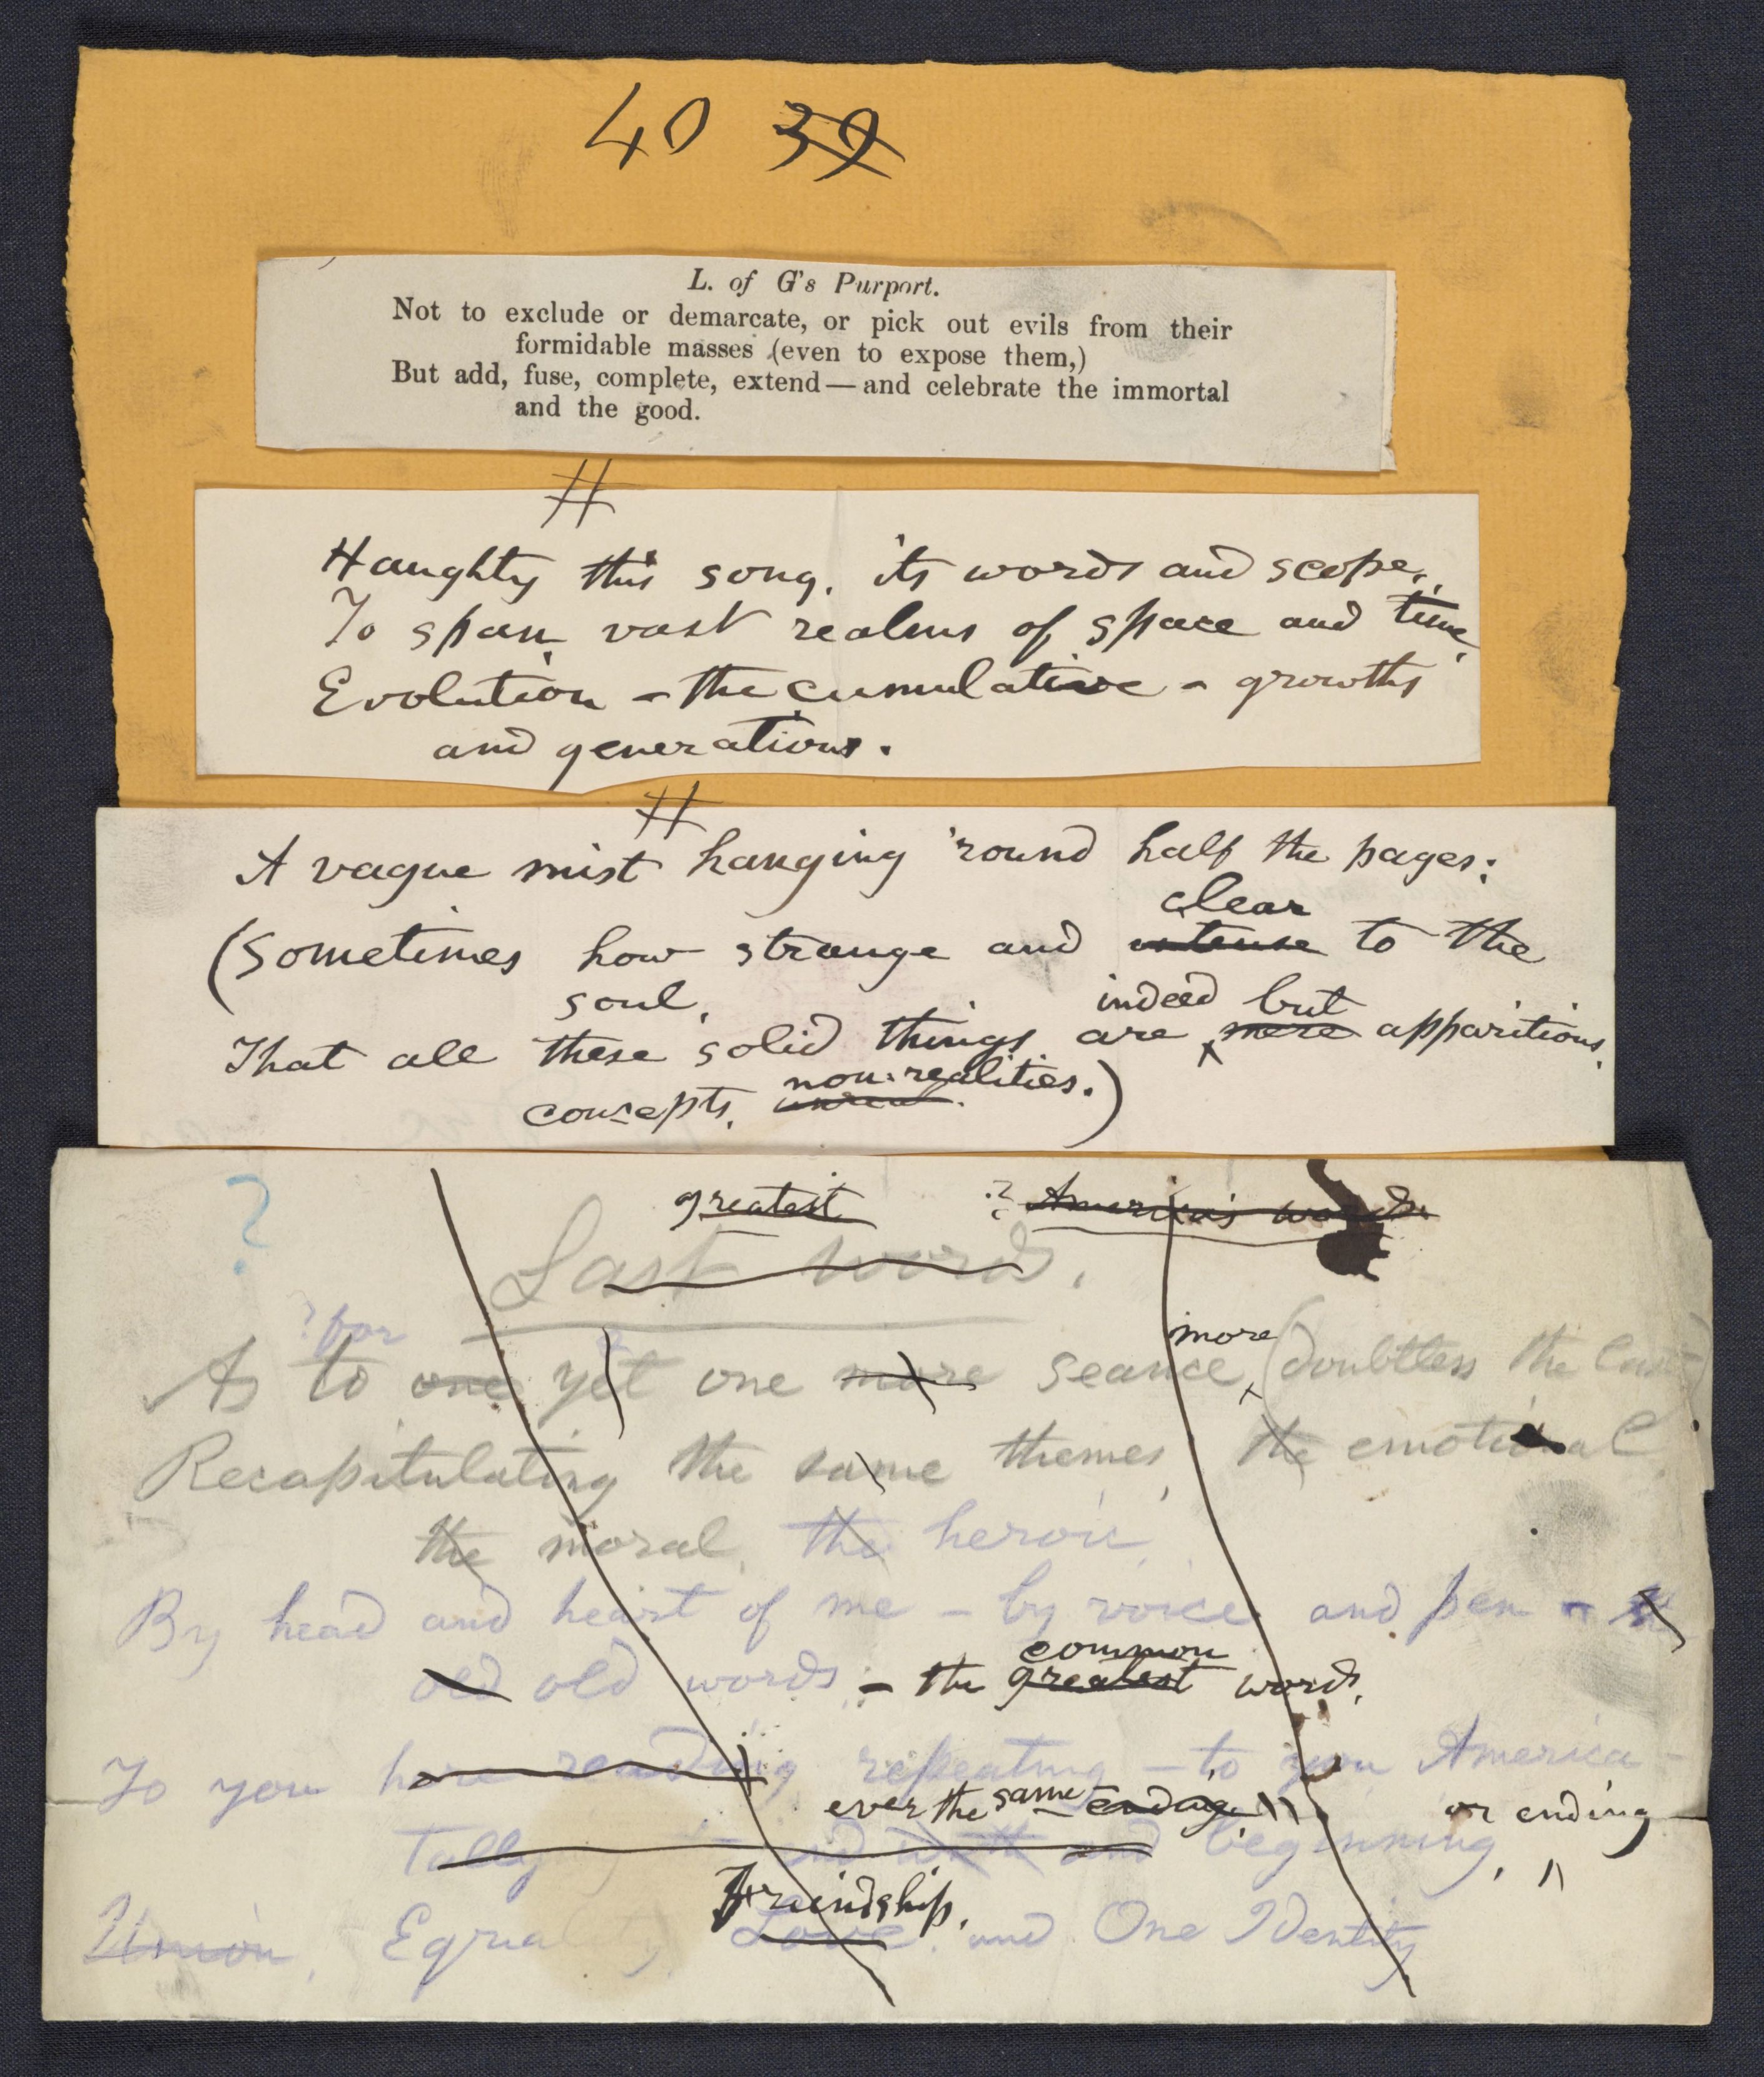 40 39
L. of G's Purport.
Not to exclude or demarcate, or pick out evils from their
formidable masses (even to expose them,)
But add, fuse, complete, extend — and celebrate the immortal
and the good.
#
Haughty this song, its words and scope,
To span vast realms of space and time,
Evolution – the cumulative – growths
and generations.
#
A vague mist hanging 'round half the pages:
clear
(Sometimes how strange and intense to the
soul,
indeed but
That all these solid things are mere apparitions,
non-realities.)
concepts, unreal.
greatest ? America's words.
?
Last word.
? for
more
As to one yet one more seance, (doubtless the last)
Recapitulating the same themes, the emotional
the moral, the heroic,
By head and heart of me – by voice and pen –
common
old old words, – the greatest words,
To you here reading repeating – to you America –
ever the same ending, or ending
Tally and with and beginning,
Friendship,
Union, Equality, Love, and One Identity